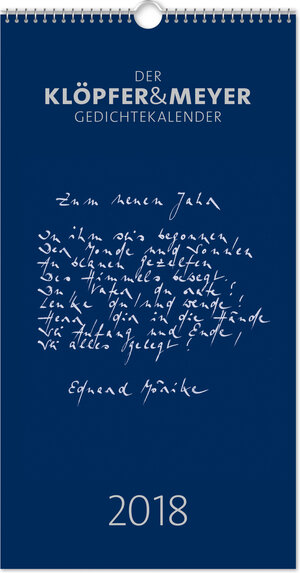 DER
KLÖPFER&MEYER
GEDICHTEKALENDER
Zum neuen Jahr
In ihm sei's begonnen,
Der Monde und Sonnen
An blauen Gezelten
Des Himmels bewegt.
Du Vater, du rate!
Lenke du und wende!
Herr, dir in die Hände
Sei Anfang und Ende,
Sei alles gelegt!
Eduard Mörike
2018